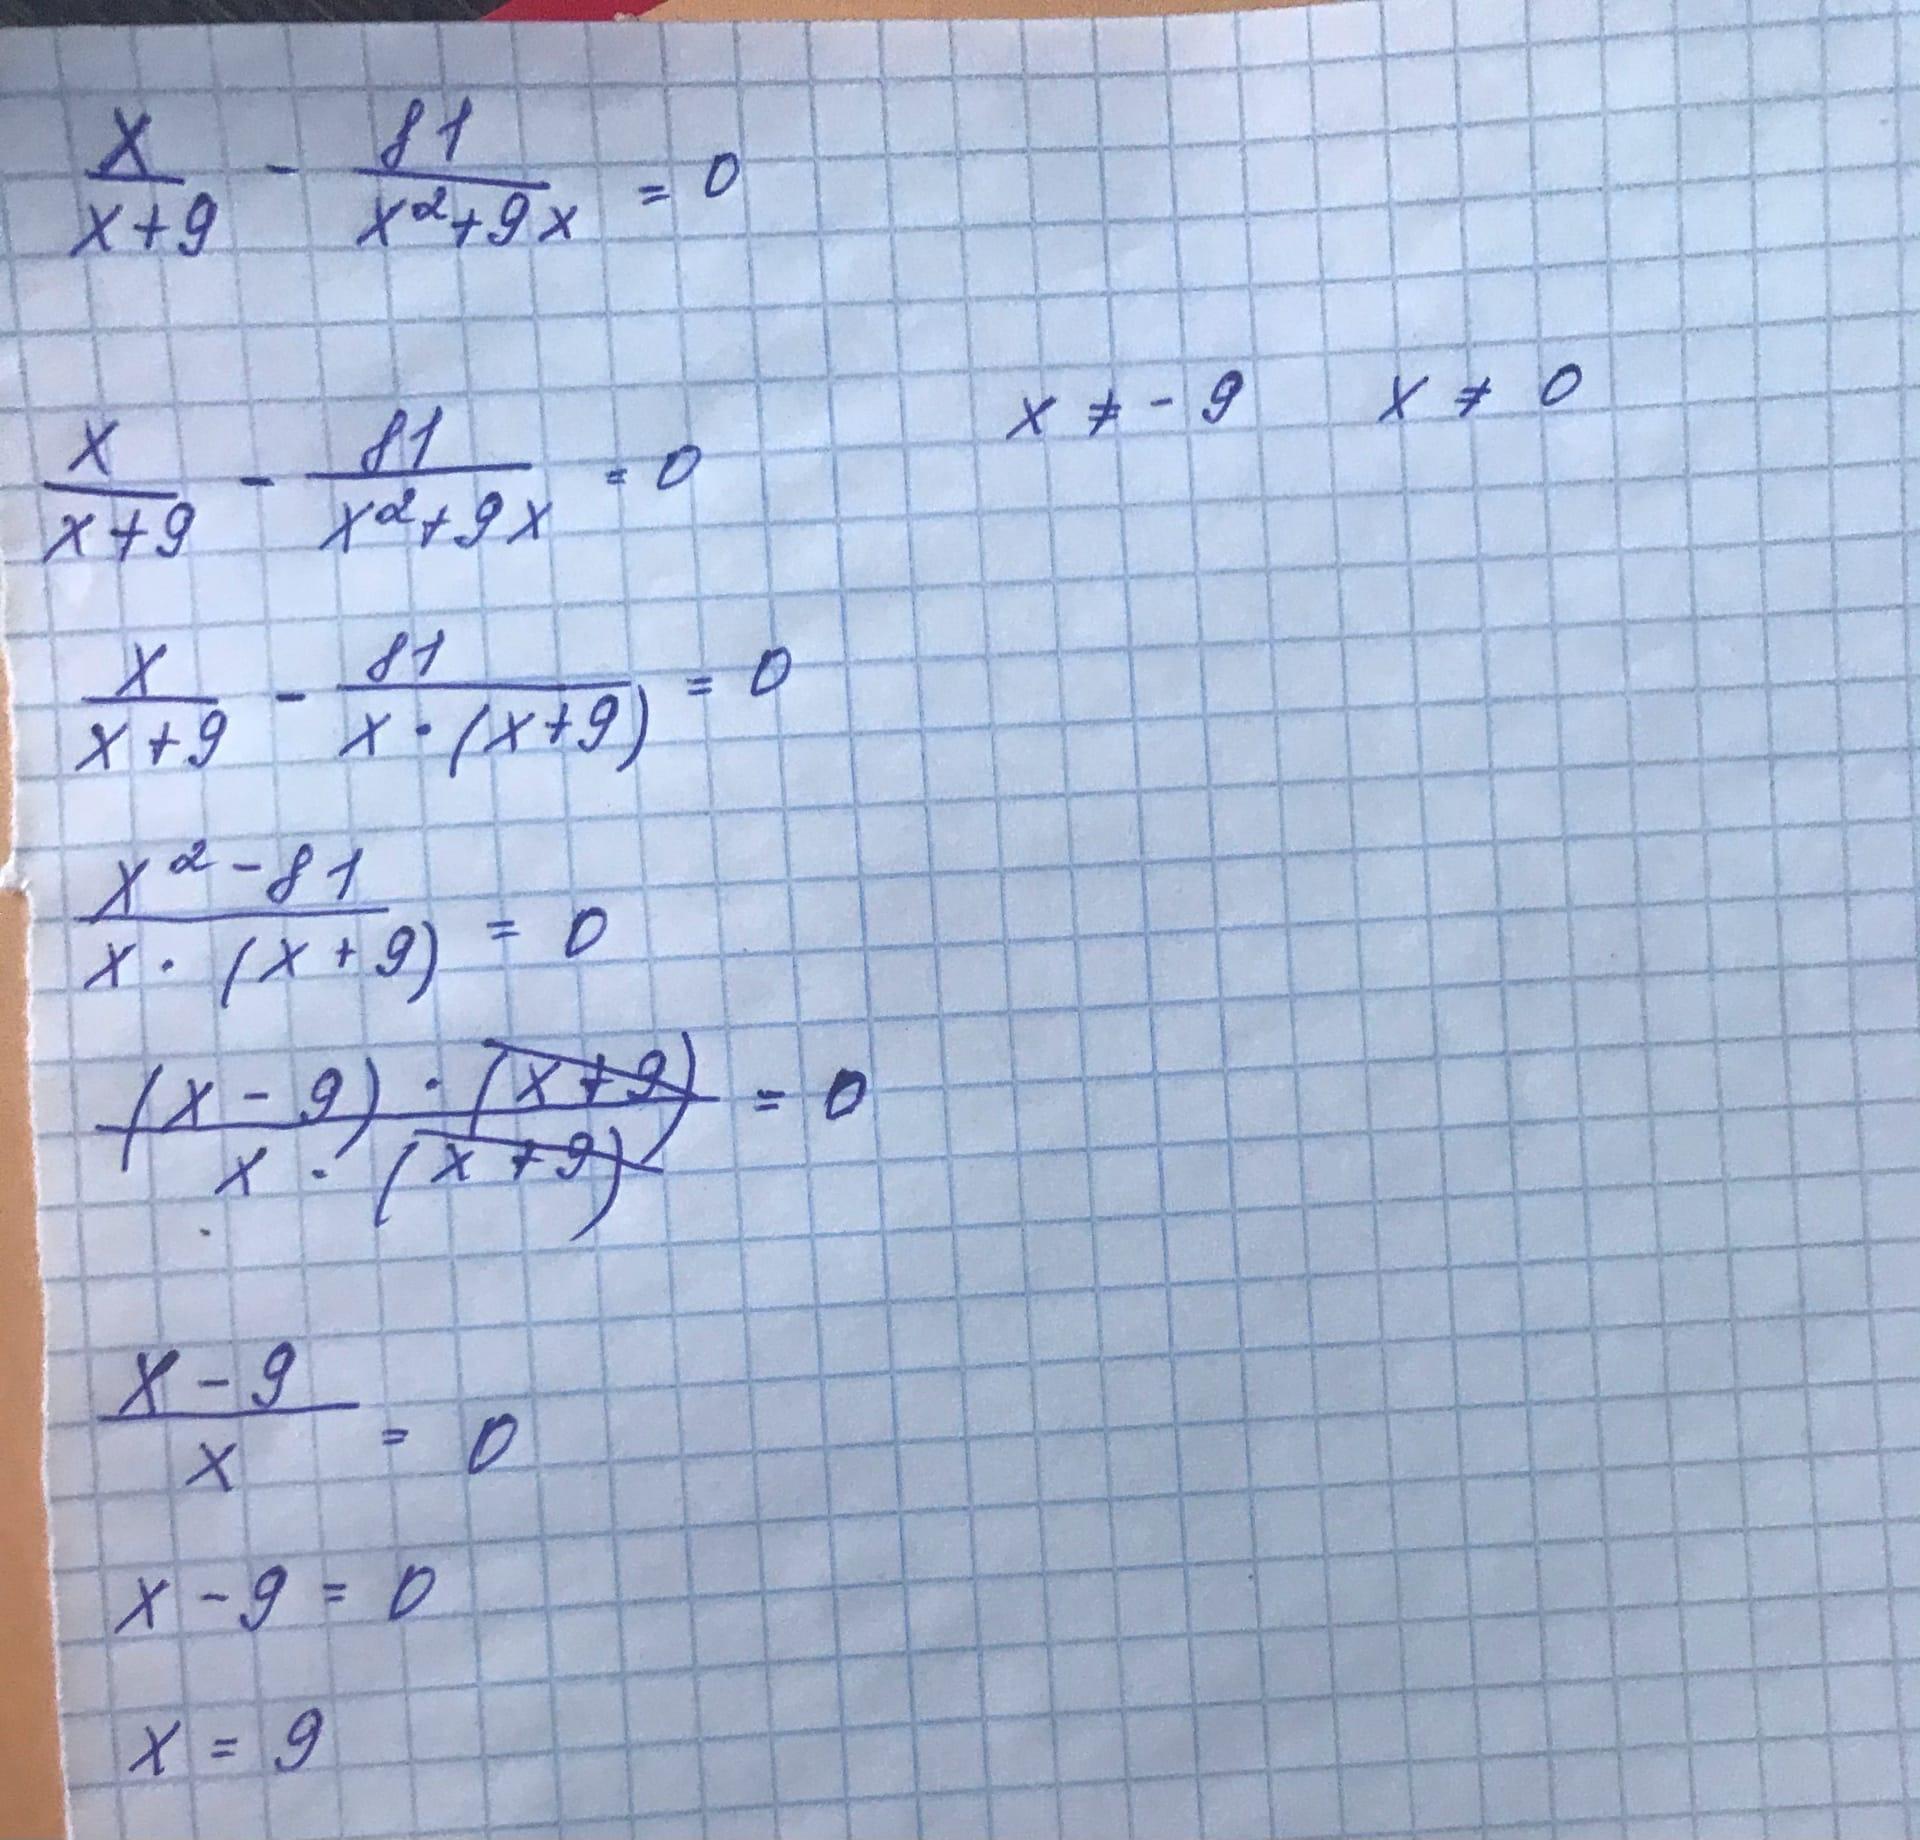 x/(x+9) - 81/(x²+9x) = 0
x ≠ -9  x ≠ 0
x/(x+9) - 81/(x²+9x) = 0
x/(x+9) - 81/(x·(x+9)) = 0
(x²-81)/(x·(x+9)) = 0
((x-9)·(x+9))/(x·(x+9)) = 0
(x-9)/x = 0
x-9=0
x=9